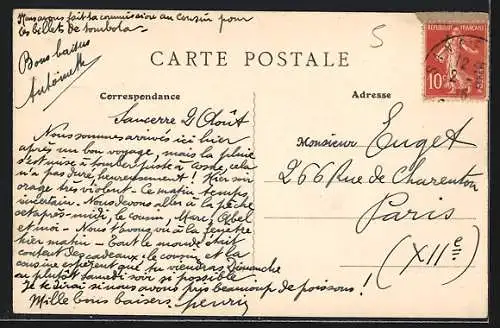 Nous avons fait la commission au cousin pour
les billets de tombola.
Bons baisers
Antoinette
5
CARTE POSTALE
Correspondance
Adresse
REPUBLIQUE FRANÇAISE
10c
Sancerre 2 Août
Nous sommes arrivés ici hier
après un bon voyage, mais la pluie
s'est mise à tomber juste à Cosne, cela
n'a pas duré heureusement ! Hier soir
orage très violent - Ce matin temps
incertain. Nous devons aller à la pêche
cet après-midi, le cousin, Marc, Abel
et moi - Nous t'avons vu à la fenêtre
hier matin - Tout le monde était
content des cadeaux. Le cousin et la
cousine espèrent que tu viendras Dimanche
au plutôt Samedi soir si possible
Je te dirai si nous avons pris beaucoup de poissons !
Mille bons baisers. Henri
Monsieur Euget
266 Rue de Charenton
Paris
(XIIe)